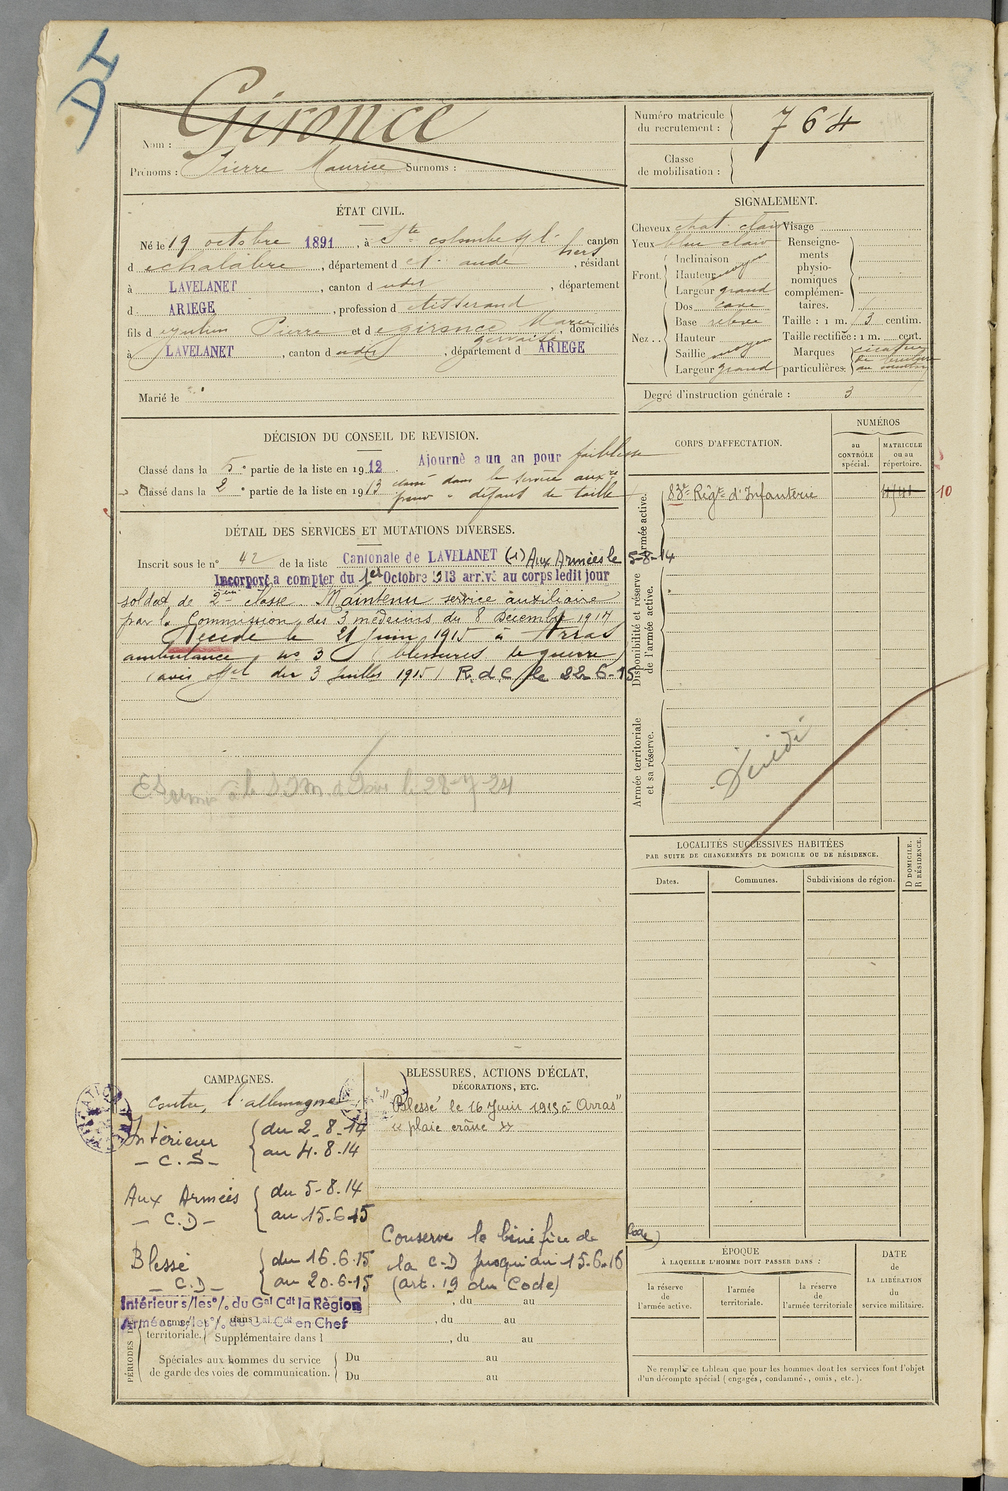 DI
Nom : Gironce
Prénoms : Pierre Maurice Surnoms :
Numéro matricule du recrutement : 764
Classe de mobilisation :
ÉTAT CIVIL.
Né le 19 octobre 1891, à Ste colombe s/ l'hers canton
d echalabre, département d et aude, résidant
à LAVELANET, canton d udit, département
d ARIEGE, profession d tisserand
fils d Pierre et de gironce Marie, domiciliés
à LAVELANET, canton d udit, département d ARIEGE
Marié le
SIGNALEMENT.
Cheveux chat. clair
Yeux bleu clair
Front.
Inclinaison
Hauteur moyen
Largeur grand
Nez..
Dos cave
Base relevé
Hauteur
Saillie moyen
Largeur grand
Visage
Renseignements physionomiques complémentaires.
Taille : 1 m. centim.
Taille rectifiée : 1 m. cent.
Marques particulières: cicatrice
Degré d'instruction générale : 3
DÉCISION DU CONSEIL DE REVISION.
Classé dans la 5e partie de la liste en 1912. Ajourné a un an pour faiblesse
Classé dans la 2e partie de la liste en 1913 classé dans le service auxre
pour défaut de taille
CORPS D'AFFECTATION.
NUMÉROS
au CONTRÔLE spécial.
MATRICULE ou au répertoire.
Armée active.
83e Régt d'Infanterie
10
Disponibilité et réserve de l'armée active.
Armée territoriale et sa réserve.
Décédé
DÉTAIL DES SERVICES ET MUTATIONS DIVERSES.
Inscrit sous le n° 42 de la liste Cantonale de LAVELANET (1) Aux Armées le 5-8-14
Incorporé a compter du 1er Octobre 1913 arrivé au corps ledit jour
soldat de 2me classe. Maintenu service auxiliaire
par la Commission des 3 médecins du 8 Décembre 1914
Décédé le 21 Juin 1915 à Arras
ambulance no 3 (blessures de guerre)
(avis offel du 3 Juillet 1915) R.d.C. le 22-6-15
le 28-7-24
LOCALITÉS SUCCESSIVES HABITÉES
PAR SUITE DE CHANGEMENTS DE DOMICILE OU DE RÉSIDENCE.
Dates.
Communes.
Subdivisions de région.
D DOMICILE.
R RÉSIDENCE.
CAMPAGNES.
contre l'allemagne
Intérieur
- C.S -
du 2-8-14
au 4-8-14
Aux Armées
- C.D -
du 5-8-14
au 15-6-15
Blessé
- C.D -
du 16.6.15
au 20-6-15
Intérieur s/les o/. du Gal Cdt la Région
Armées s/les o/. du Gal Cdt en Chef
BLESSURES, ACTIONS D'ÉCLAT,
DÉCORATIONS, ETC.
Blessé le 16 Juin 1915 à Arras"
" plaie crâne "
Conserve le bénéfice de
la C-D jusqu'au 15-6-16
(art. 19 du Code)
Code)
territoriale.
, du au
Supplémentaire dans l , du au
Spéciales aux hommes du service de garde des voies de communication.
Du au
Du au
ÉPOQUE
À LAQUELLE L'HOMME DOIT PASSER DANS :
la réserve de l'armée active.
l'armée territoriale.
la réserve de l'armée territoriale
DATE de LA LIBÉRATION du service militaire.
Ne remplir ce tableau que pour les hommes dont les services font l'objet
d'un décompte spécial (engagés, condamnés, omis, etc.).